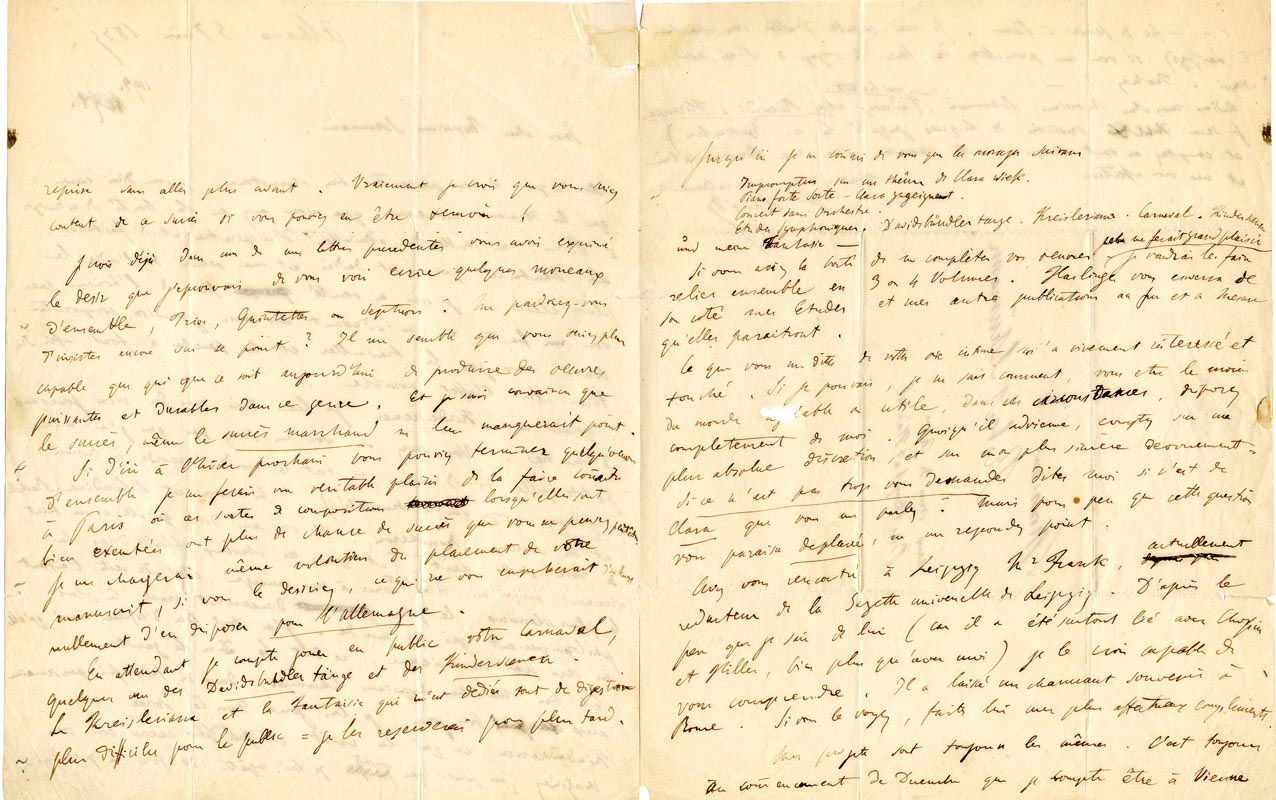 reprise sans aller plus avant. Vraiment je crois que vous seriez
content de ce succès si vous pouviez en être témoin!
Je crois déjà dans une de mes lettres precedentes vous avoir exprimé
le desir que j'eprouvais de vous voir ecrire quelques morceaux
d'ensemble, Trios, Quintettes ou Septuors. Me pardonnez-vous
d'insister encore sur ce point? Il me semble que vous seriez plus
capable que qui que ce soit aujourd'hui de produire des oeuvres
puissantes et durables dans ce genre. Et je suis convaincu que
le succès, même le succès marchand ne leur manquerait point.
Si d'ici à l'hiver prochain vous pouviez terminer quelqu'oeuvre
d'ensemble je me ferais un veritable plaisir de la faire connaitre
à Paris où ces sortes de compositions lorsqu'elles sont
bien executées ont plus de chance de succès que vous ne pensez
Je me chargerai même volontiers du placement de votre
manuscrit, si vous le desiriez, ce qui ne vous empecherait
nullement d'en disposer pour l'Allemagne.
En attendant je compte jouer en public votre Carnaval,
quelques uns des Davidsbundlertänze et des Kinderscenen.
La Kreisleriana et la Fantaisie qui m'est dediée sont de digestion
plus difficiles pour le public = je les reserverai pour plus tard.
Jusqu'ici je ne connais de vous que les ouvrages suivans
Impromptus sur un thême de Clara Wieck.
Piano forte Sonate – Clara zugeeignet.
Concert sans Orchestre.
Etudes Symphoniques. Davidsbündlertänze. Kreisleriana. Carneval. Kinderscenen
und meine Fantasie —
cela me ferait grand plaisir
Si vous aviez la bonté de me completer vos oeuvres je voudrais les faire
relier ensemble en 3 ou 4 Volumes. Haslinger vous enverra de
son coté mes Etudes et mes autres publications au fur et a mesure
qu'elles paraitront.
Ce que vous me dites de votre vie intime m'a vivement interessé et
touché. Si je pouvais, je ne sais comment, vous etre le moins
du monde agréable ou utile, dans ces circonstances, disposez
completement de moi. Quoiqu'il advienne, comptez sur ma
plus absolue discretion et sur mon plus sincere devouement =
Si ce n'est pas trop vous demander dites moi si c'est de
Clara que vous me parlez? Mais pour peu que cette question
vous paraisse deplacée, ne me repondez point.
Avez vous rencontré à Leipzig Mr Frank, actuellement
redacteur de la Gazette universelle de Leipzig. D'après le
peu que je sais de lui (car il a été surtout lié avec Chopin
et Hiller, bien plus qu'avec moi) je le crois capable de
vous comprendre. Il a laissé un charmant souvenir à
Rome. Si vous le voyez, faites lui mes plus affectueux complimens.
Mes projets sont toujours les mêmes. C'est toujours
au commencement de Decembre que je compte être à Vienne